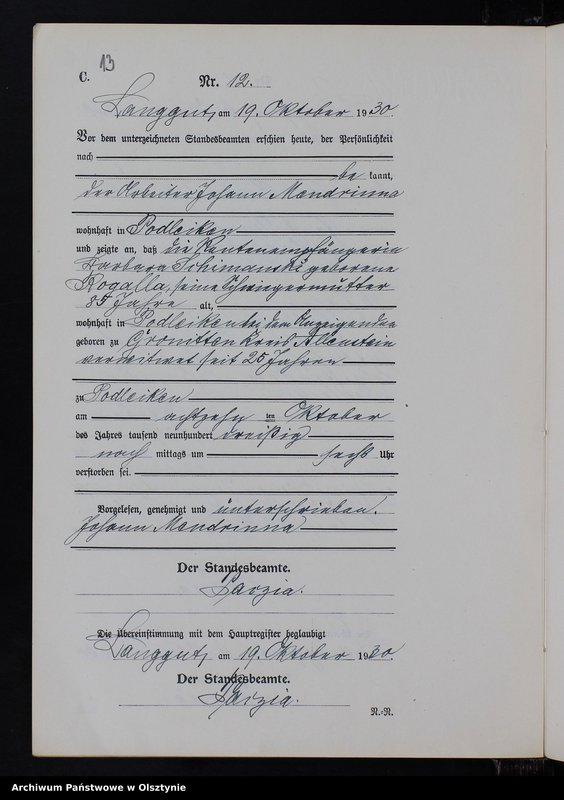 13
C.
Nr. 12.
Langgut, am 19. Oktober 1930.
Vor dem unterzeichneten Standesbeamten erschien heute, der Persönlichkeit
nach
be kannt,
der Arbeiter Johann Mendrinna
wohnhaft in Podleiken
und zeigte an, daß die Rentenempfängerin
Barbara Schimanski geborene
Rogalla, seine Schwiegermutter
85 Jahre alt,
wohnhaft in Podleiken bei dem Anzeigenden
geboren zu Gronitten Kreis Allenstein
verwitwet seit 25 Jahren
zu Podleiken
am achtzehn ten Oktober
des Jahres tausend neunhundert dreißig
nach mittags um sechs Uhr
verstorben sei.
Vorgelesen, genehmigt und unterschrieben.
Johann Mendrinna
Der Standesbeamte.
Die Übereinstimmung mit dem Hauptregister beglaubigt
Langgut, am 19. Oktober 1930.
Der Standesbeamte.
N.-R.
Archiwum Państwowe w Olsztynie